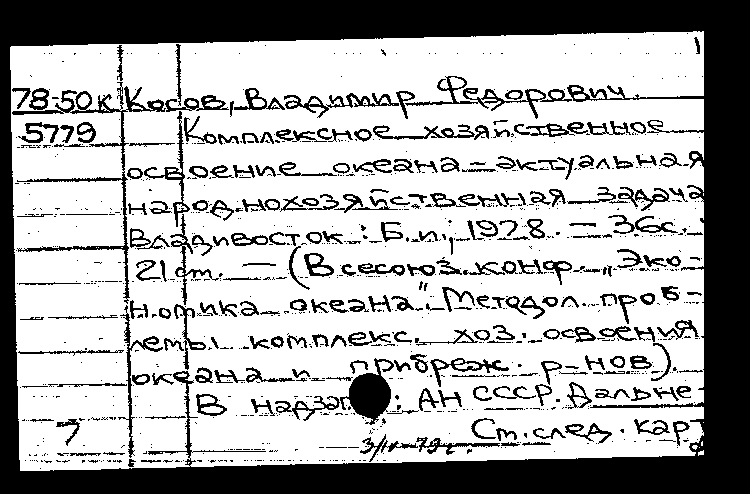 78-50к Косов, Владимир Федорович.
5779 Комплексное хозяйственное
освоение океана - актуальная
народнохозяйственная задача
Владивосток : Б.и., 1978. - 36с. :
21 см. - (Всесоюз. конф. „Эко-
номика океана". Методол. проб-
лемы комплекс. хоз. освоения
океана и прибреж. р-нов).
В надзаг : АН СССР. Дальне-
7 Ст. след. карт
3/IV-79г.